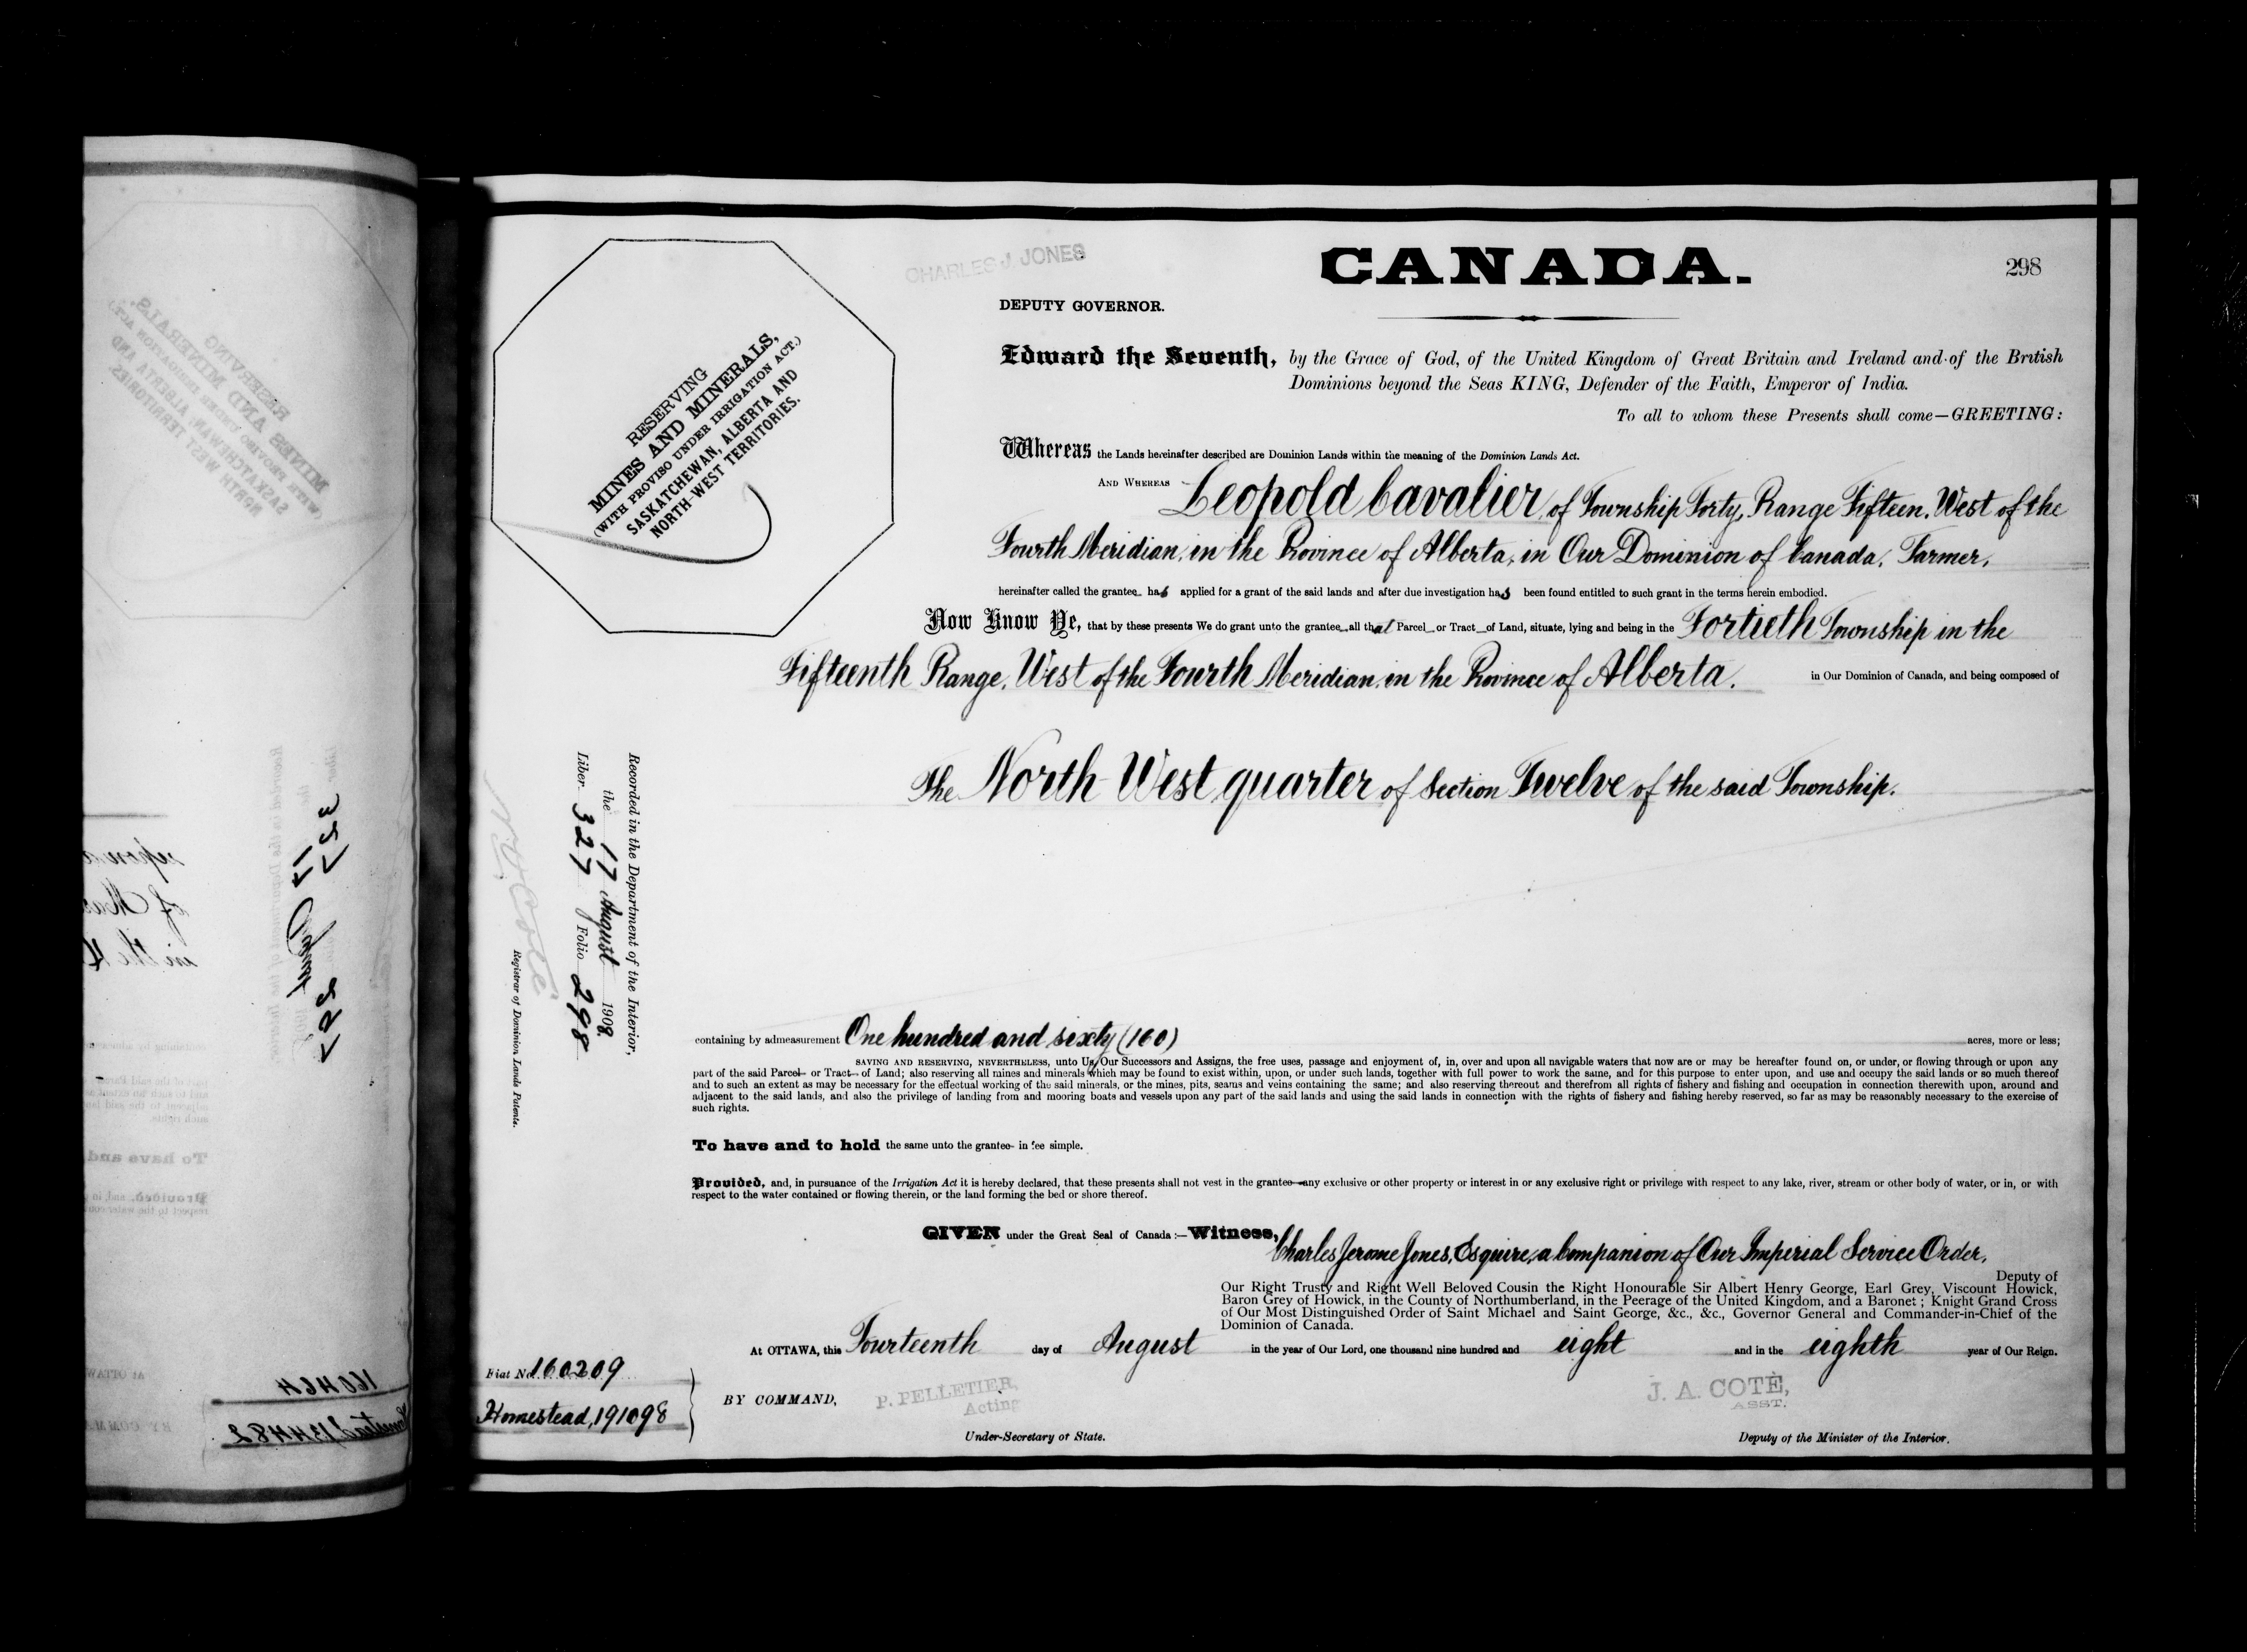 CHARLES J. JONES
CANADA.
298
DEPUTY GOVERNOR.
RESERVING
MINES AND MINERALS,
(WITH PROVISO UNDER IRRIGATION ACT.)
SASKATCHEWAN, ALBERTA AND
NORTH-WEST TERRITORIES.
Edward the Seventh, by the Grace of God, of the United Kingdom of Great Britain and Ireland and of the British
Dominions beyond the Seas KING, Defender of the Faith, Emperor of India.
To all to whom these Presents shall come—GREETING:
Whereas the Lands hereinafter described are Dominion Lands within the meaning of the Dominion Lands Act.
AND WHEREAS Leopold Cavalier, of Township Forty, Range Fifteen, West of the
Fourth Meridian, in the Province of Alberta, in Our Dominion of Canada, Farmer,
hereinafter called the grantee has applied for a grant of the said lands and after due investigation has been found entitled to such grant in the terms herein embodied.
Now Know Ye, that by these presents We do grant unto the grantee all that Parcel or Tract of Land, situate, lying and being in the Fortieth Township in the
Fifteenth Range, West of the Fourth Meridian, in the Province of Alberta, in Our Dominion of Canada, and being composed of
The North West quarter of Section Twelve of the said Township.
Recorded in the Department of the Interior,
the 17 August 1908.
Liber 327 Folio 298
N. O. Coté
Registrar of Dominion Lands Patents.
containing by admeasurement One hundred and sixty (160) acres, more or less;
SAVING AND RESERVING, NEVERTHELESS, unto Us, Our Successors and Assigns, the free uses, passage and enjoyment of, in, over and upon all navigable waters that now are or may be hereafter found on, or under, or flowing through or upon any
part of the said Parcel or Tract of Land; also reserving all mines and minerals which may be found to exist within, upon, or under such lands, together with full power to work the same, and for this purpose to enter upon, and use and occupy the said lands or so much thereof
and to such an extent as may be necessary for the effectual working of the said minerals, or the mines, pits, seams and veins containing the same; and also reserving thereout and therefrom all rights of fishery and fishing and occupation in connection therewith upon, around and
adjacent to the said lands, and also the privilege of landing from and mooring boats and vessels upon any part of the said lands and using the said lands in connection with the rights of fishery and fishing hereby reserved, so far as may be reasonably necessary to the exercise of
such rights.
To have and to hold the same unto the grantee in fee simple.
Provided, and, in pursuance of the Irrigation Act it is hereby declared, that these presents shall not vest in the grantee any exclusive or other property or interest in or any exclusive right or privilege with respect to any lake, river, stream or other body of water, or in, or with
respect to the water contained or flowing therein, or the land forming the bed or shore thereof.
GIVEN under the Great Seal of Canada:—Witness, Charles Jerome Jones, Esquire, a Companion of Our Imperial Service Order,
Deputy of
Our Right Trusty and Right Well Beloved Cousin the Right Honourable Sir Albert Henry George, Earl Grey, Viscount Howick,
Baron Grey of Howick, in the County of Northumberland, in the Peerage of the United Kingdom, and a Baronet; Knight Grand Cross
of Our Most Distinguished Order of Saint Michael and Saint George, &c., &c., Governor General and Commander-in-Chief of the
Dominion of Canada.
At OTTAWA, this Fourteenth day of August in the year of Our Lord, one thousand nine hundred and eight and in the eighth year of Our Reign.
Fiat No. 160209
Homestead, 191098
BY COMMAND,
P. PELLETIER,
Acting
Under-Secretary of State.
J. A. COTÉ,
ASST.
Deputy of the Minister of the Interior.